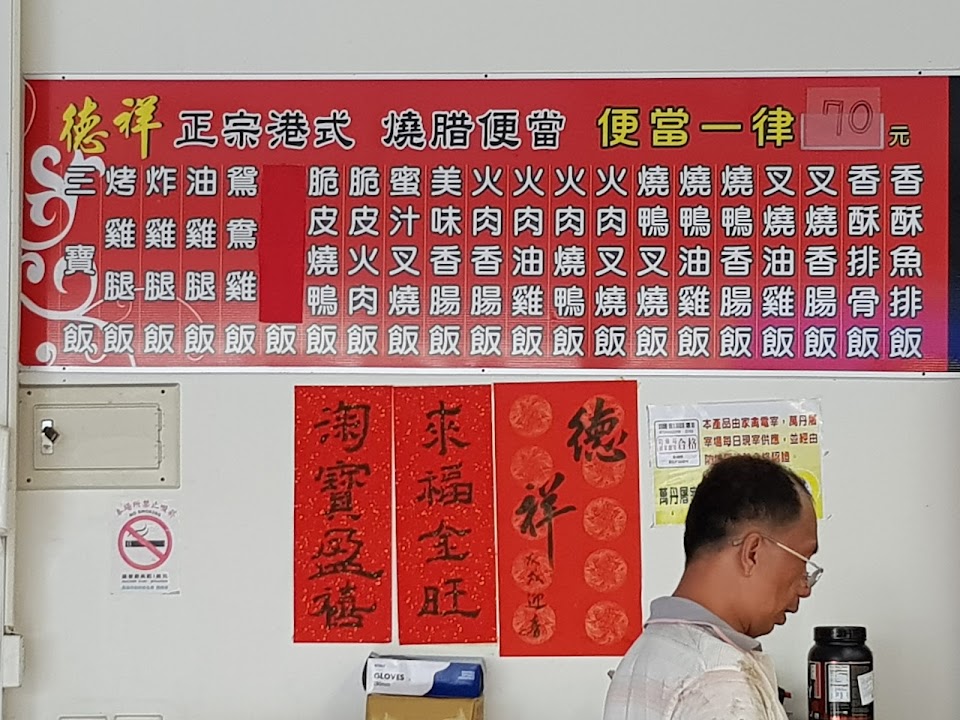 德祥 正宗港式 燒腊便當 便當一律70元
香酥魚排飯
香酥排骨飯
叉燒香腸飯
叉燒油雞飯
燒鴨香腸飯
燒鴨油雞飯
燒鴨叉燒飯
火肉叉燒飯
火肉燒鴨飯
火肉油雞飯
火肉香腸飯
美味香腸飯
蜜汁叉燒飯
脆皮火肉飯
脆皮燒鴨飯
飯
鴛鴦雞飯
油雞腿飯
炸雞腿飯
烤雞腿飯
三寶飯
德祥
歡迎
來福全旺
淘寶盈禧
本產品由家禽電宰,萬丹屠
宰場每日現宰供應,並經由
合格
萬丹屠宰
本場所禁止吸菸
NO SMOKING
GLOVES